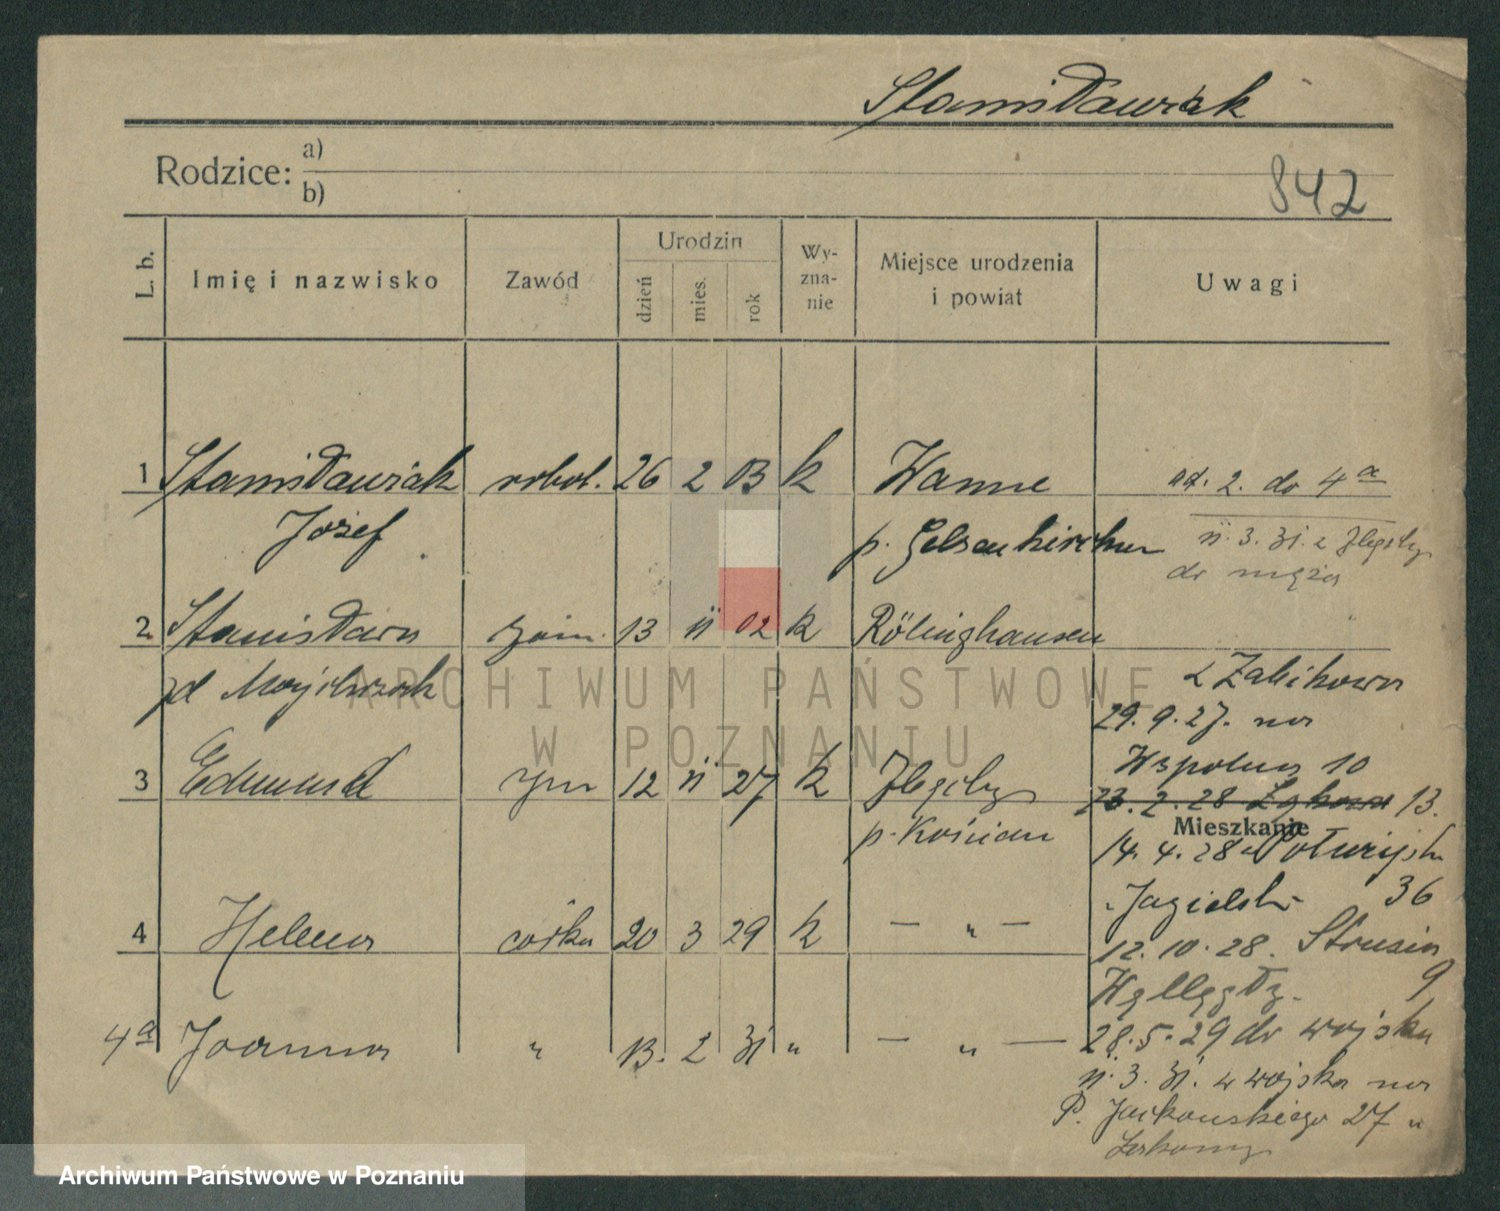 Stanisławiak
Rodzice: a)
b)
842
L. b. Imię i nazwisko Zawód Urodzin dzień mies. rok Wy-zna-nie Miejsce urodzenia i powiat Uwagi
1 Stanisławiak robot. 26 2 03 k Wanne ad. 2. do 4a
Józef p. Gelsenkirchen 11. 3. 31. z
do męża
2. Stanisława 13 11 02 k Röhlinghausen
zd z Żabikowa
29. 9. 27. na
Wspólna 10
3 Edmund syn 12 11 27 k 23. 2. 28 13.
Mieszkanie
p. Kościan 14. 4. 28
36
4 Helena córka 20 3 29 k — " — 12. 10. 28. Strusia
9
28. 5. 29 do wojska
4a Joanna " 13. 2 31 " — " —
11. 3. 31. z wojska na
P. Jackowskiego 27 u
ARCHIWUM PAŃSTWOWE
W POZNANIU
Archiwum Państwowe w Poznaniu